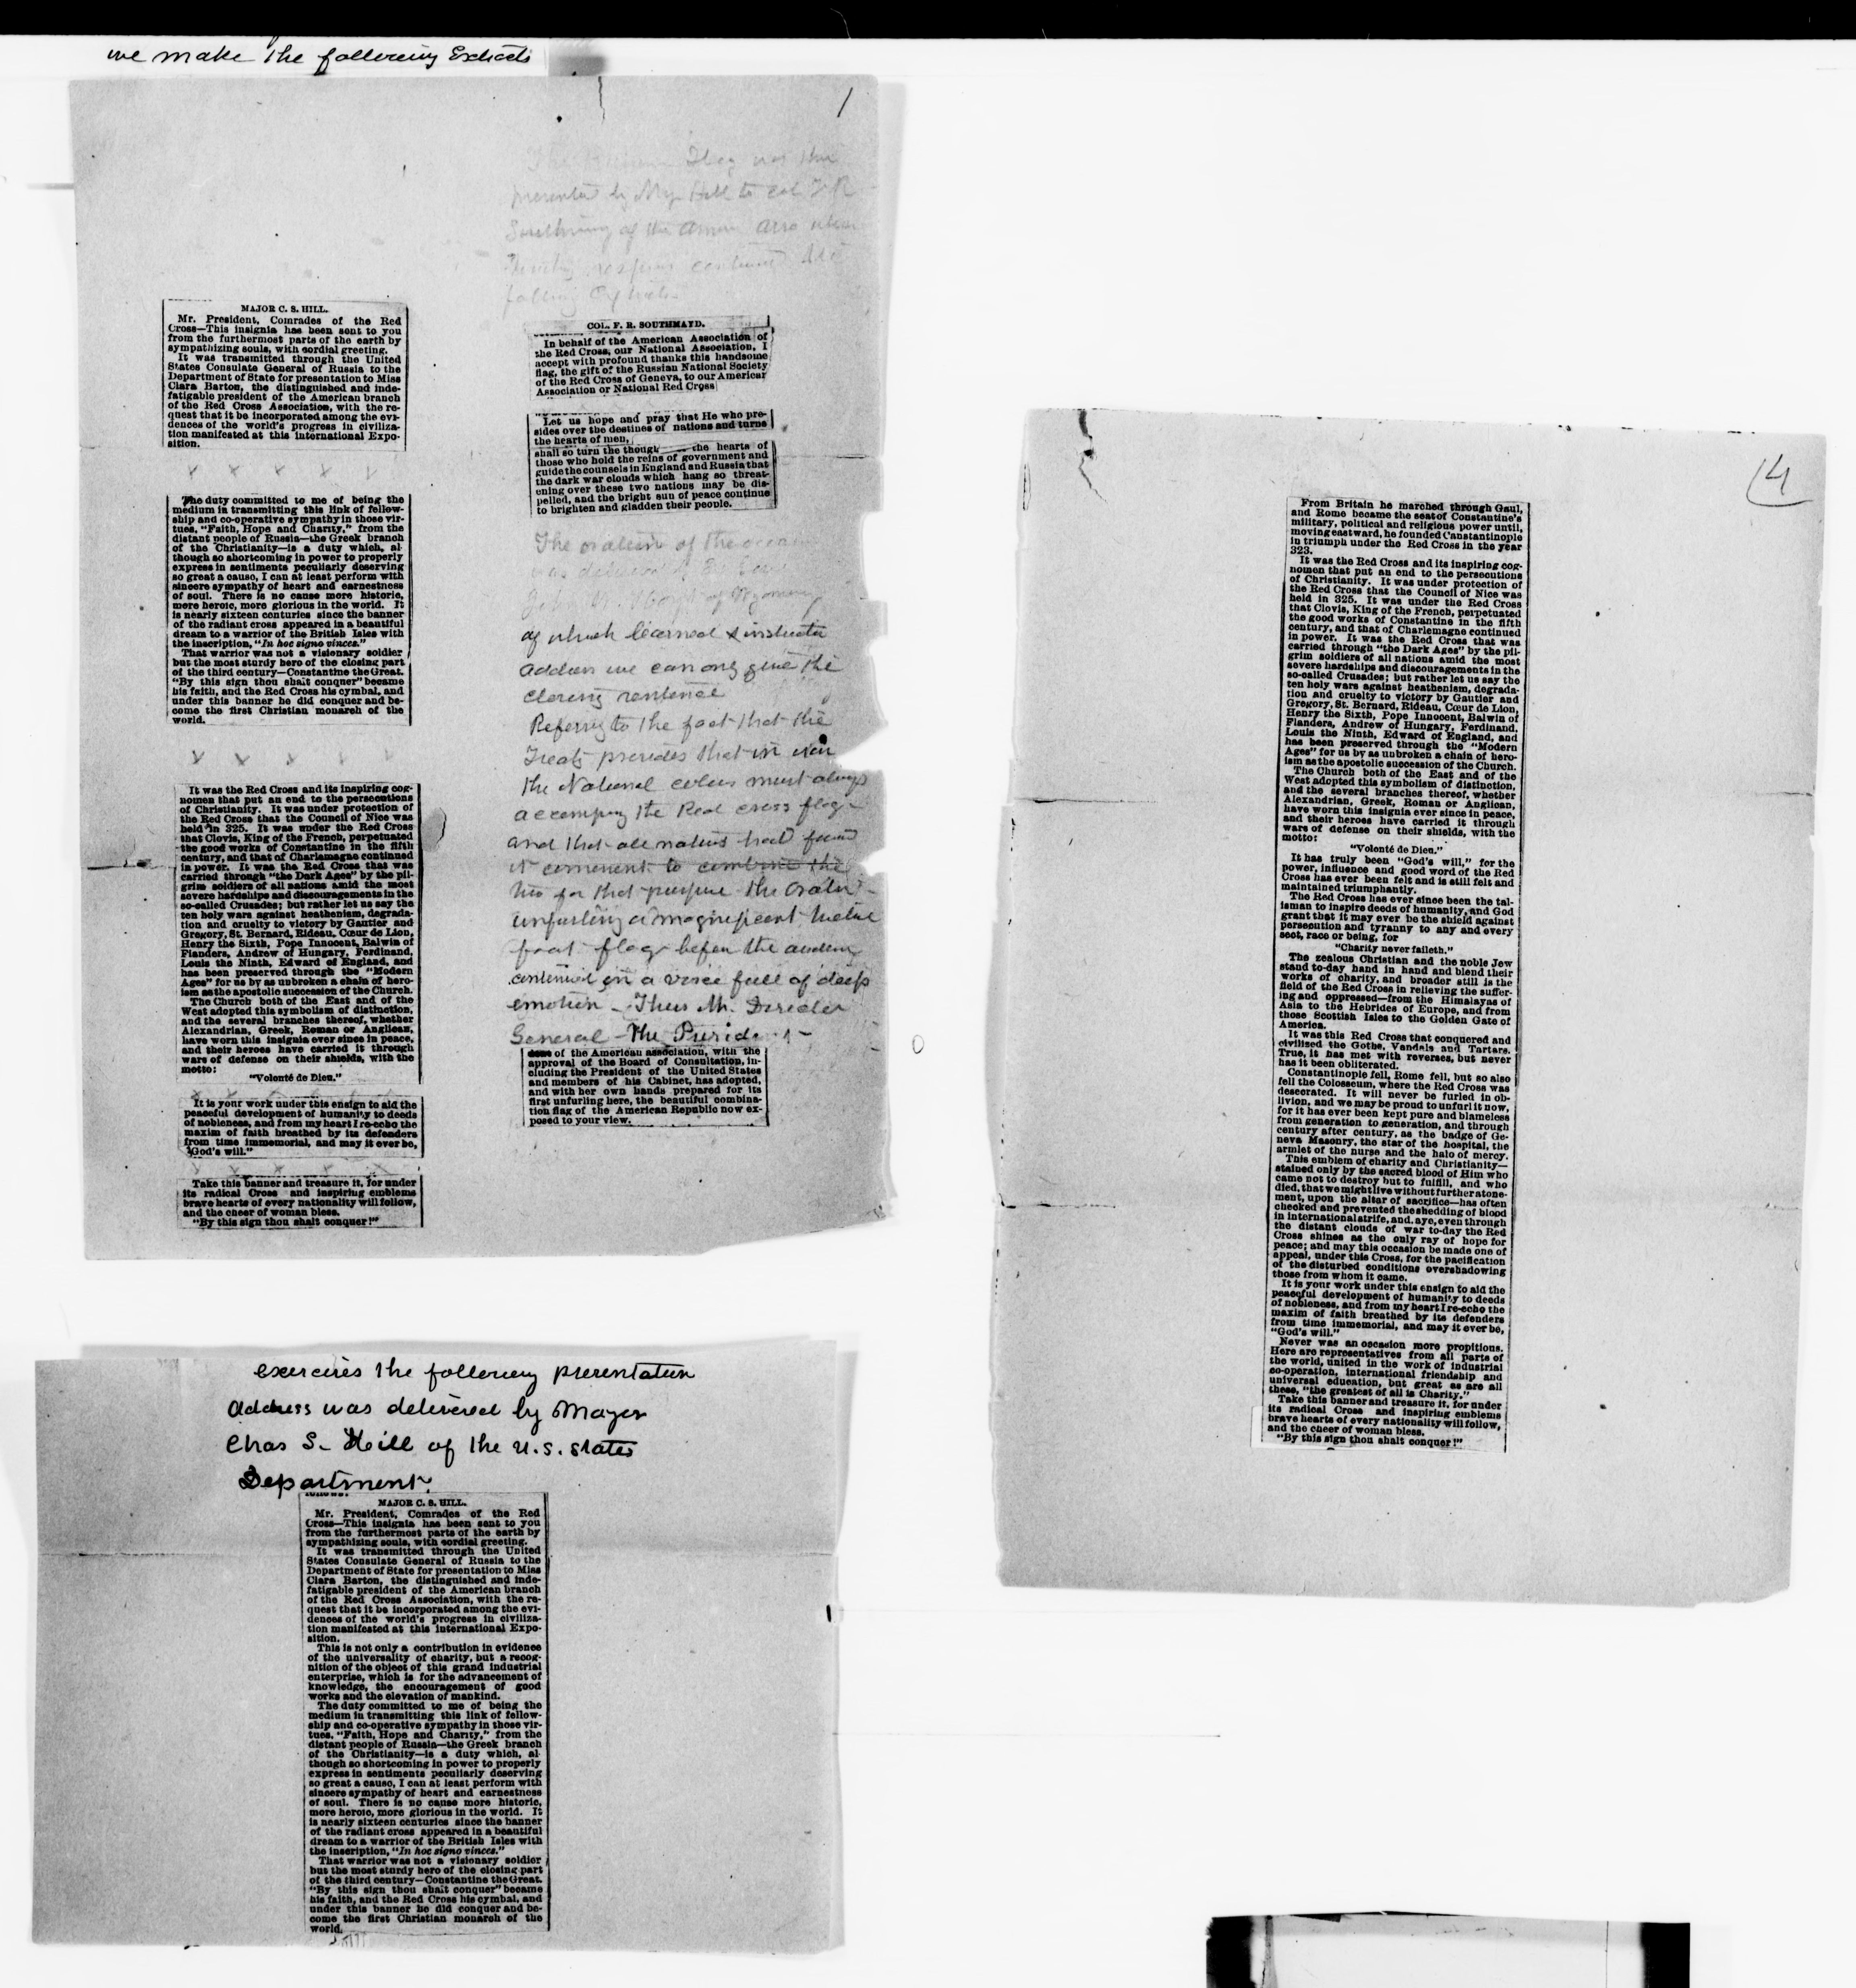 we make the following Extracts
1
MAJOR C. S. HILL.
Mr. President, Comrades of the Red
Cross—This insignia has been sent to you
from the furthermost parts of the earth by
sympathizing souls, with cordial greeting.
It was transmitted through the United
States Consulate General of Russia to the
Department of State for presentation to Miss
Clara Barton, the distinguished and inde-
fatigable president of the American branch
of the Red Cross Association, with the re-
quest that it be incorporated among the evi-
dences of the world's progress in civiliza-
tion manifested at this international Expo-
sition.
x x x x x
The duty committed to me of being the
medium in transmitting this link of fellow-
ship and co-operative sympathy in those vir-
tues, "Faith, Hope and Charity," from the
distant people of Russia—the Greek branch
of the Christianity—is a duty which, al-
though so shortcoming in power to properly
express in sentiments peculiarly deserving
so great a cause, I can at least perform with
sincere sympathy of heart and earnestness
of soul. There is no cause more historic,
more heroic, more glorious in the world. It
is nearly sixteen centuries since the banner
of the radiant cross appeared in a beautiful
dream to a warrior of the British Isles with
the inscription, "In hoc signo vinces."
That warrior was not a visionary soldier
but the most sturdy hero of the closing part
of the third century—Constantine the Great.
"By this sign thou shalt conquer" became
his faith, and the Red Cross his cymbal, and
under this banner he did conquer and be-
come the first Christian monarch of the
world.
x x x x x
It was the Red Cross and its inspiring cog-
nomen that put an end to the persecutions
of Christianity. It was under protection of
the Red Cross that the Council of Nice was
held in 325. It was under the Red Cross
that Clovis, King of the French, perpetuated
the good works of Constantine in the fifth
century, and that of Charlemagne continued
in power. It was the Red Cross that was
carried through "the Dark Ages" by the pil-
grim soldiers of all nations amid the most
severe hardships and discouragements in the
so-called Crusades; but rather let us say the
ten holy wars against heathenism, degrada-
tion and cruelty to victory by Gautier and
Gregory, St. Bernard, Rideau, Cœur de Lion,
Henry the Sixth, Pope Innocent, Balwin of
Flanders, Andrew of Hungary, Ferdinand,
Louis the Ninth, Edward of England, and
has been preserved through the "Modern
Ages" for us by as unbroken a chain of hero-
ism as the apostolic succession of the Church.
The Church both of the East and of the
West adopted this symbolism of distinction,
and the several branches thereof, whether
Alexandrian, Greek, Roman or Anglican,
have worn this insignia ever since in peace,
and their heroes have carried it through
wars of defense on their shields, with the
motto:
"Volonté de Dieu."
It is your work under this ensign to aid the
peaceful development of humanity to deeds
of nobleness, and from my heart I re-echo the
maxim of faith breathed by its defenders
from time immemorial, and may it ever be,
"God's will."
x x x x x
Take this banner and treasure it, for under
its radical Cross and inspiring emblems
brave hearts of every nationality will follow,
and the cheer of woman bless.
"By this sign thou shalt conquer!"
The Flag was then
presented by Maj. Hill to Col F R
of the
following
COL. F. R. SOUTHMAYD.
In behalf of the American Association of
the Red Cross, our National Association, I
accept with profound thanks this handsome
flag, the gift of the Russian National Society
of the Red Cross of Geneva, to our American
Association or National Red Cross
Let us hope and pray that He who pre-
sides over the destines of nations and turns
the hearts of men,
shall so turn the though the hearts of
those who hold the reins of government and
guide the counsels in England and Russia that
the dark war clouds which hang so threat-
ening over these two nations may be dis-
pelled, and the bright sun of peace continue
to brighten and gladden their people.
The oration of the
was delivered
of Wyoming
of which learned &
address we can only give the
closing sentence
Referring to the fact that the
Treaty provides that in war
the National colors must always
accompany the Red cross flag
and that all nations had found
it convenient to combine the
two for that purpose the Orator
unfurling a magnificent twelve
foot flag before the audience
continued in a voice full of deep
emotion – Thus Mr. Director
General – The Presid
of the American association, with the
approval of the Board of Consultation, in-
cluding the President of the United States
and members of his Cabinet, has adopted,
and with her own hands prepared for its
first unfurling here, the beautiful combina-
tion flag of the American Republic now ex-
posed to your view.
exercises the following presentation
Address was delivered by Mayor
Chas S. Hill of the U.S. States
Department.
follows:
MAJOR C. S. HILL.
Mr. President, Comrades of the Red
Cross—This insignia has been sent to you
from the furthermost parts of the earth by
sympathizing souls, with cordial greeting.
It was transmitted through the United
States Consulate General of Russia to the
Department of State for presentation to Miss
Clara Barton, the distinguished and inde-
fatigable president of the American branch
of the Red Cross Association, with the re-
quest that it be incorporated among the evi-
dences of the world's progress in civiliza-
tion manifested at this international Expo-
sition.
This is not only a contribution in evidence
of the universality of charity, but a recog-
nition of the object of this grand industrial
enterprise, which is for the advancement of
knowledge, the encouragement of good
works and the elevation of mankind.
The duty committed to me of being the
medium in transmitting this link of fellow-
ship and co-operative sympathy in those vir-
tues, "Faith, Hope and Charity," from the
distant people of Russia—the Greek branch
of the Christianity—is a duty which, al-
though so shortcoming in power to properly
express in sentiments peculiarly deserving
so great a cause, I can at least perform with
sincere sympathy of heart and earnestness
of soul. There is no cause more historic,
more heroic, more glorious in the world. It
is nearly sixteen centuries since the banner
of the radiant cross appeared in a beautiful
dream to a warrior of the British Isles with
the inscription, "In hoc signo vinces."
That warrior was not a visionary soldier
but the most sturdy hero of the closing part
of the third century—Constantine the Great.
"By this sign thou shalt conquer" became
his faith, and the Red Cross his cymbal, and
under this banner he did conquer and be-
come the first Christian monarch of the
world.
4
From Britain he marched through Gaul,
and Rome became the seat of Constantine's
military, political and religious power until,
moving eastward, he founded Constantinople
in triumph under the Red Cross in the year
323.
It was the Red Cross and its inspiring cog-
nomen that put an end to the persecutions
of Christianity. It was under protection of
the Red Cross that the Council of Nice was
held in 325. It was under the Red Cross
that Clovis, King of the French, perpetuated
the good works of Constantine in the fifth
century, and that of Charlemagne continued
in power. It was the Red Cross that was
carried through "the Dark Ages" by the pil-
grim soldiers of all nations amid the most
severe hardships and discouragements in the
so-called Crusades; but rather let us say the
ten holy wars against heathenism, degrada-
tion and cruelty to victory by Gautier and
Gregory, St. Bernard, Rideau, Cœur de Lion,
Henry the Sixth, Pope Innocent, Balwin of
Flanders, Andrew of Hungary, Ferdinand,
Louis the Ninth, Edward of England, and
has been preserved through the "Modern
Ages" for us by as unbroken a chain of hero-
ism as the apostolic succession of the Church.
The Church both of the East and of the
West adopted this symbolism of distinction,
and the several branches thereof, whether
Alexandrian, Greek, Roman or Anglican,
have worn this insignia ever since in peace,
and their heroes have carried it through
wars of defense on their shields, with the
motto:
"Volonté de Dieu."
It has truly been "God's will," for the
power, influence and good word of the Red
Cross has ever been felt and is still felt and
maintained triumphantly.
The Red Cross has ever since been the tal-
isman to inspire deeds of humanity, and God
grant that it may ever be the shield against
persecution and tyranny to any and every
sect, race or being, for
"Charity never faileth."
The zealous Christian and the noble Jew
stand to-day hand in hand and blend their
works of charity, and broader still is the
field of the Red Cross in relieving the suffer-
ing and oppressed—from the Himalayas of
Asia to the Hebrides of Europe, and from
those Scottish Isles to the Golden Gate of
America.
It was this Red Cross that conquered and
civilized the Goths, Vandals and Tartars.
True, it has met with reverses, but never
has it been obliterated.
Constantinople fell, Rome fell, but so also
fell the Colosseum, where the Red Cross was
desecrated. It will never be furled in ob-
livion, and we may be proud to unfurl it now,
for it has ever been kept pure and blameless
from generation to generation, and through
century after century, as the badge of Ge-
neva Masonry, the star of the hospital, the
armlet of the nurse and the halo of mercy.
This emblem of charity and Christianity—
stained only by the sacred blood of Him who
came not to destroy but to fulfill, and who
died, that we might live without further atone-
ment, upon the altar of sacrifice—has often
checked and prevented the shedding of blood
in international strife, and, aye, even through
the distant clouds of war to-day the Red
Cross shines as the only ray of hope for
peace; and may this occasion be made one of
appeal, under this Cross, for the pacification
of the disturbed conditions overshadowing
those from whom it came.
It is your work under this ensign to aid the
peaceful development of humanity to deeds
of nobleness, and from my heart I re-echo the
maxim of faith breathed by its defenders
from time immemorial, and may it ever be,
"God's will."
Never was an occasion more propitious.
Here are representatives from all parts of
the world, united in the work of industrial
co-operation, international friendship and
universal education, but great as are all
these, "the greatest of all is Charity."
Take this banner and treasure it, for under
its radical Cross and inspiring emblems
brave hearts of every nationality will follow,
and the cheer of woman bless.
"By this sign thou shalt conquer!"